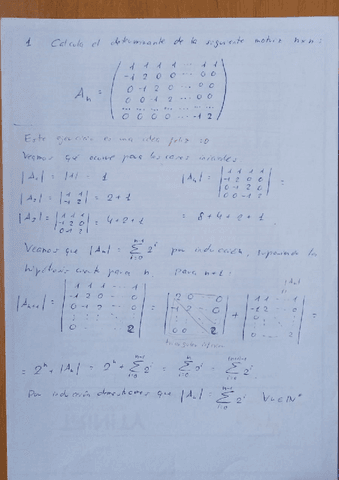 1 Calcula el determinante de la siguiente matriz nxn:
A_n = ( 1 1 1 1 ... 1 1
-1 2 0 0 ... 0 0
0 -1 2 0 ... 0 0
0 0 -1 2 ... 0 0
... ... ... ...
0 0 0 0 ... -1 2 )
Este ejercicio es una idea
Veamos que ocurre para los casos iniciales
|A_1| = |1| = 1
|A_2| = | 1 1 / -1 2 | = 2+1
|A_3| = | 1 1 1 / -1 2 0 / 0 -1 2 | = 4+2+1
|A_4| = | 1 1 1 1 / -1 2 0 0 / 0 -1 2 0 / 0 0 -1 2 | =
= 8+4+2+1
Veamos que |A_n| = Σ_{i=0}^{n-1} 2^i por inducción, suponemos la
hipótesis cierta para n, para n+1:
|A_n|
|A_{n+1}| = | 1 1 1 1 ... 1 / -1 2 0 ... 0 / 0 -1 2 ... 0 / ... 2 | = | 2 0 ... 0 / -1 2 ... 0 / 0 0 ... 2 | + | 1 1 1 ... 1 / -1 2 ... 0 / 0 ... 2 | =
= 2^n + |A_n| = 2^n + Σ_{i=0}^{n-1} 2^i = Σ_{i=0}^{n} 2^i = Σ_{i=0}^{(n+1)-1} 2^i
Por inducción que |A_n| = Σ_{i=0}^{n-1} 2^i ∀n∈ℕ